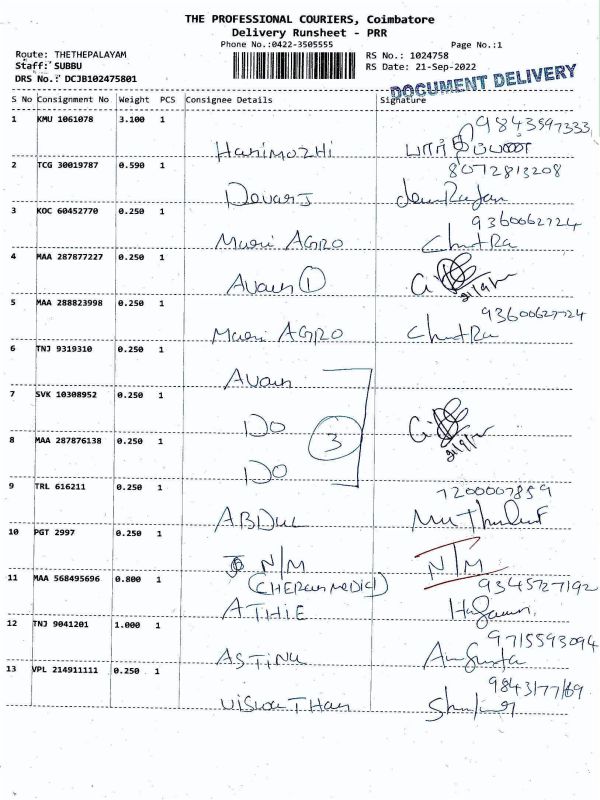 THE PROFESSIONAL COURIERS, Coimbatore
Delivery Runsheet - PRR
Phone No.:0422-3505555
Page No.:1
Route: THETHEPALAYAM
RS No.: 1024758
Staff: SUBBU
RS Date: 21-Sep-2022
DRS No.: DCJB102475801
DOCUMENT DELIVERY
S No Consignment No Weight PCS Consignee Details Signature
1 KMU 1061078 3.100 1 9843597333
Harimozhi
2 TCG 30019787 0.590 1 8072813208
Devaraj
3 KOC 60452770 0.250 1 9360062724
Maari AGRO Chitra
4 MAA 287877227 0.250 1
①
5 MAA 288823998 0.250 1 93600627724
Maari AGRO Chitra
6 TNJ 9319310 0.250 1
7 SVK 10308952 0.250 1
DO
3
8 MAA 287876138 0.250 1
DO
9 TRL 616211 0.250 1 7200007859
ABDUL
10 PGT 2997 0.250 1
N/M N/M
11 MAA 568495696 0.800 1 9345727192
ATHIE
12 TNJ 9041201 1.000 1 9715593094
13 VPL 214911111 0.250 1 9843177169